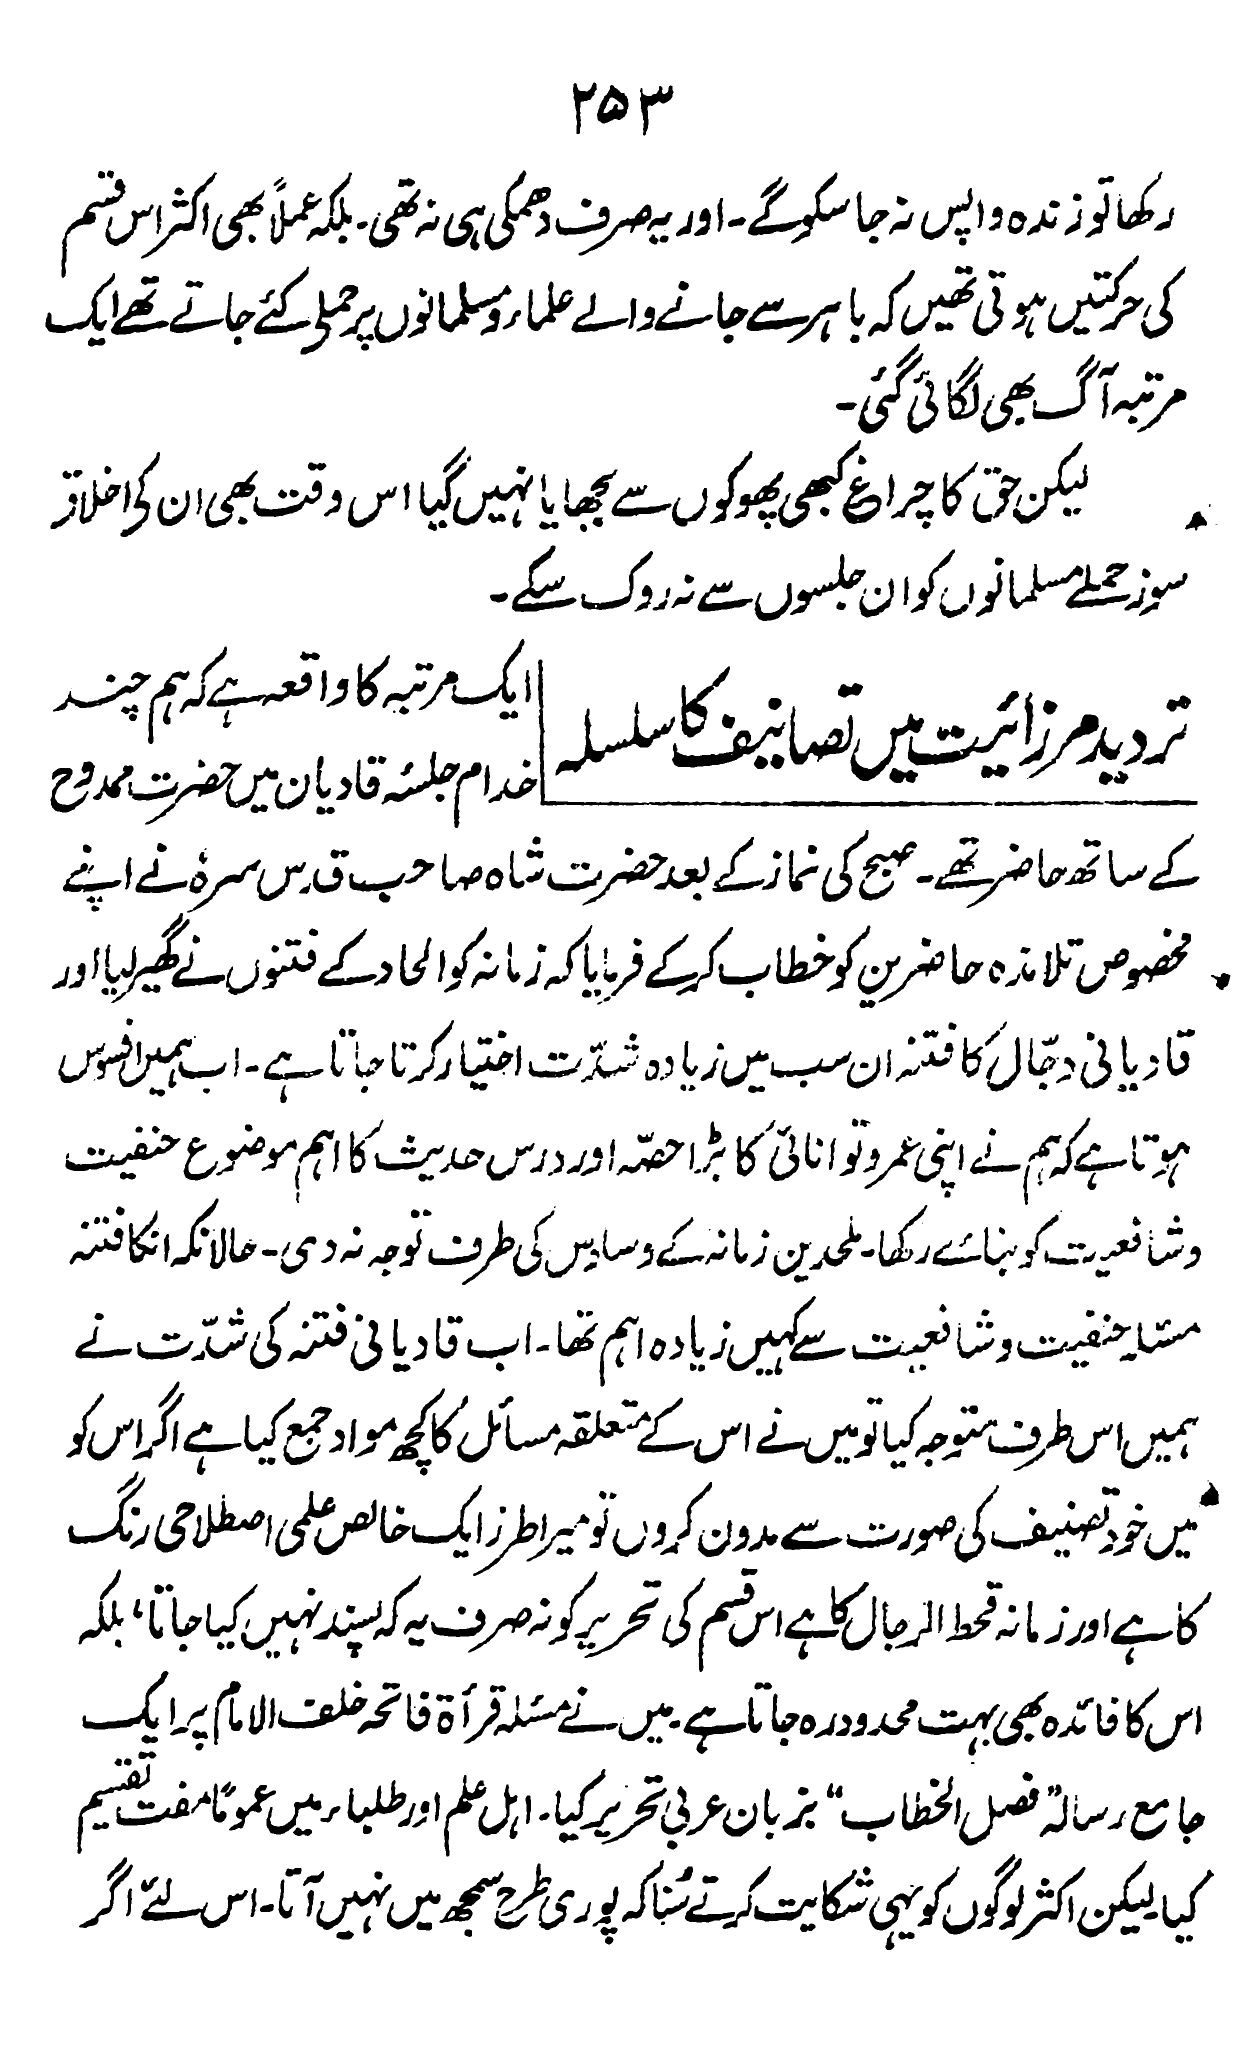 ۲۵۳
رکھا تو زندہ واپس نہ جا سکو گے۔ اور یہ صرف دھمکی ہی نہ تھی۔ بلکہ عملاً بھی اکثر اس قسم
کی حرکتیں ہوتی تھیں کہ باہر سے جانے والے علماء و مسلمانوں پر حملے کئے جاتے تھے ایک
مرتبہ آگ بھی لگائی گئی۔
لیکن حق کا چراغ کبھی پھوکوں سے بجھایا نہیں گیا اس وقت بھی ان کی اخلاق
سوز حملے مسلمانوں کو ان جلسوں سے نہ روک سکے۔
تردید مرزائیت میں تصانیف کا سلسلہ
ایک مرتبہ کا واقعہ ہے کہ ہم چند
خدام جلسۂ قادیان میں حضرت ممدوح
کے ساتھ حاضر تھے۔ صبح کی نماز کے بعد حضرت شاہ صاحب قدس سرہٗ نے اپنے
مخصوص تلامذہ حاضرین کو خطاب کرکے فرمایا کہ زمانہ کو الحاد کے فتنوں نے گھیر لیا اور
قادیانی دجّال کا فتنہ ان سب میں زیادہ شدّت اختیار کرتا جاتا ہے۔ اب ہمیں افسوس
ہوتا ہے کہ ہم نے اپنی عمر و توانائی کا بڑا حصّہ اور درس حدیث کا اہم موضوع حنفیت
و شافعیت کو بنائے رکھا۔ ملحدین زمانہ کے وساوس کی طرف توجہ نہ دی۔ حالانکہ انکا فتنہ
مسئلہ حنفیت و شافعیت سے کہیں زیادہ اہم تھا۔ اب قادیانی فتنہ کی شدّت نے
ہمیں اس طرف متوجہ کیا تو میں نے اس کے متعلقہ مسائل کا کچھ مواد جمع کیا ہے اگر اس کو
میں خود تصنیف کی صورت سے مدون کروں تو میرا طرز ایک خالص علمی اصطلاحی رنگ
کا ہے اور زمانہ قحط الرجال کا ہے اس قسم کی تحریر کو نہ صرف یہ کہ پسند نہیں کیا جاتا، بلکہ
اس کا فائدہ بھی بہت محدود رہ جاتا ہے۔ میں نے مسئلہ قرأۃ فاتحہ خلف الامام پر ایک
جامع رسالہ "فصل الخطاب" بزبان عربی تحریر کیا۔ اہل علم اور طلباء میں عموماً مفت تقسیم
کیا۔ لیکن اکثر لوگوں کو یہی شکایت کرتے سُنا کہ پوری طرح سمجھ میں نہیں آتا۔ اس لئے اگر